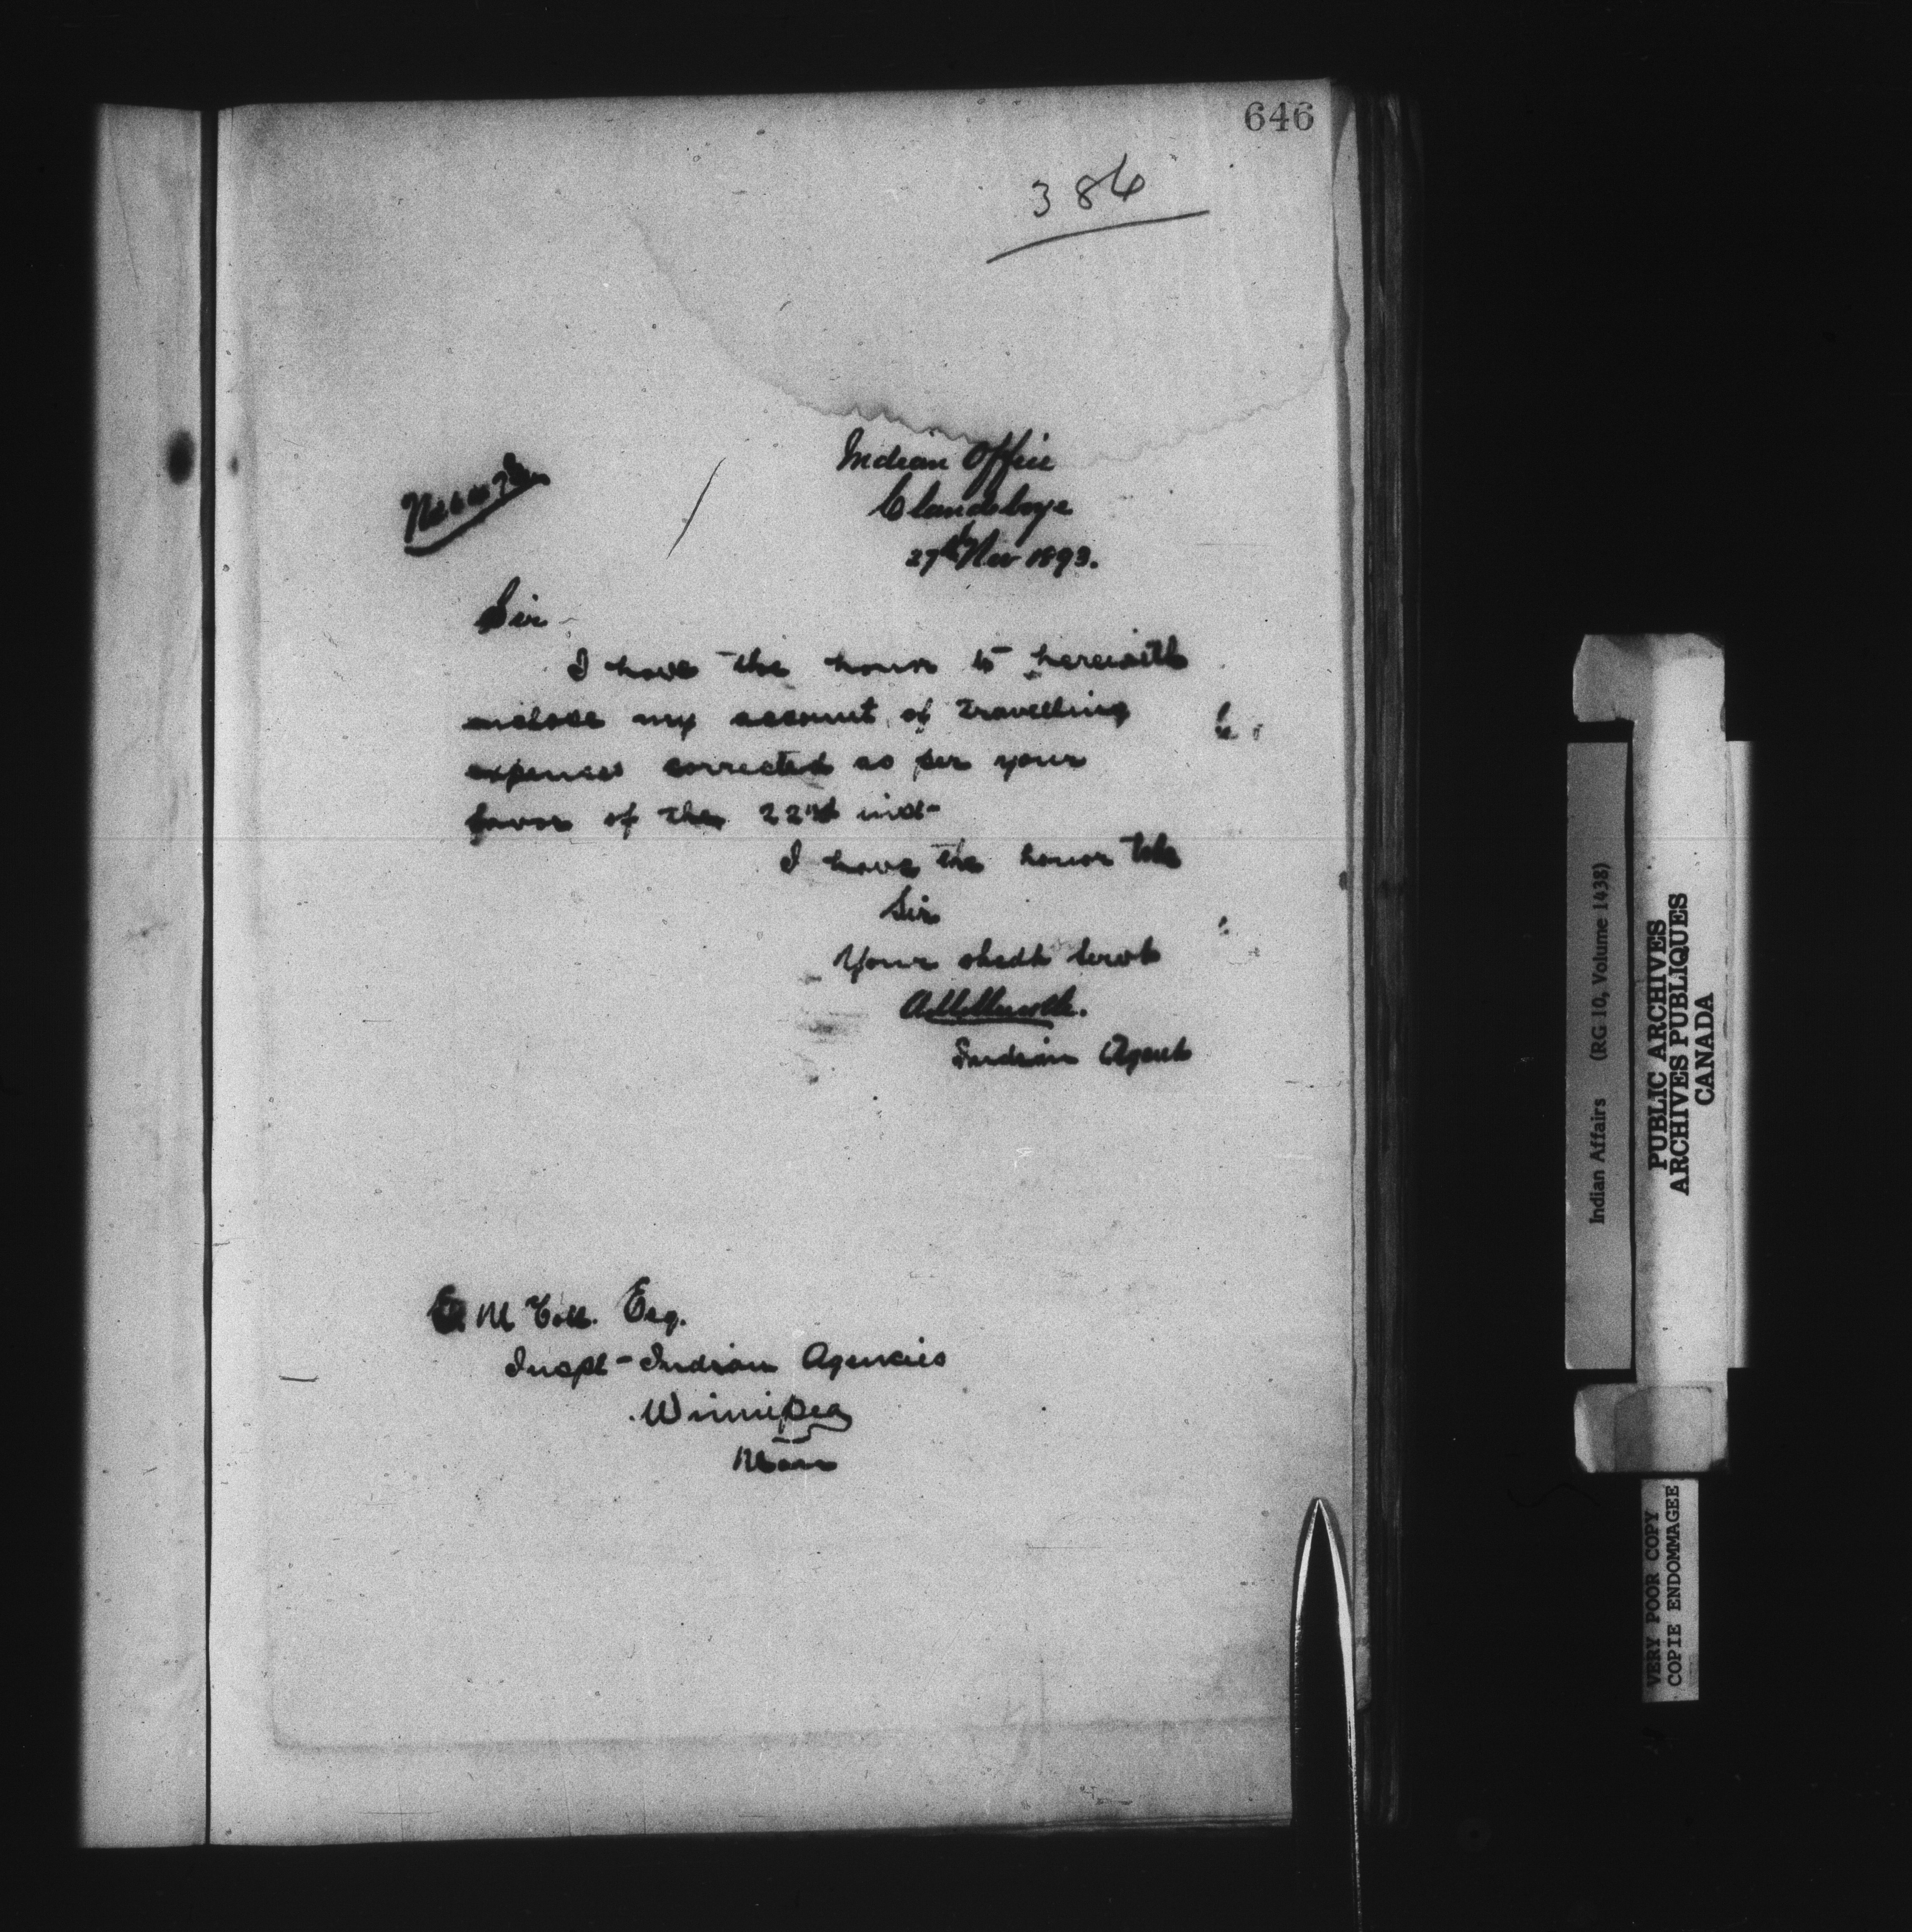 646
386
Indian Office
Clandeboye
27th Nov 1893.
Sir
I have the honor to herewith
enclose my account of travelling
expenses corrected as per your
favor of the 22nd inst
I have the honor to be
Sir
Your obedt servt
Indian Agent
E. McColl. Esq.
Inspt Indian Agencies
Winnipeg
Man
Indian Affairs (RG 10, Volume 1438)
PUBLIC ARCHIVES
ARCHIVES PUBLIQUES
CANADA
VERY POOR COPY
COPIE ENDOMMAGEE